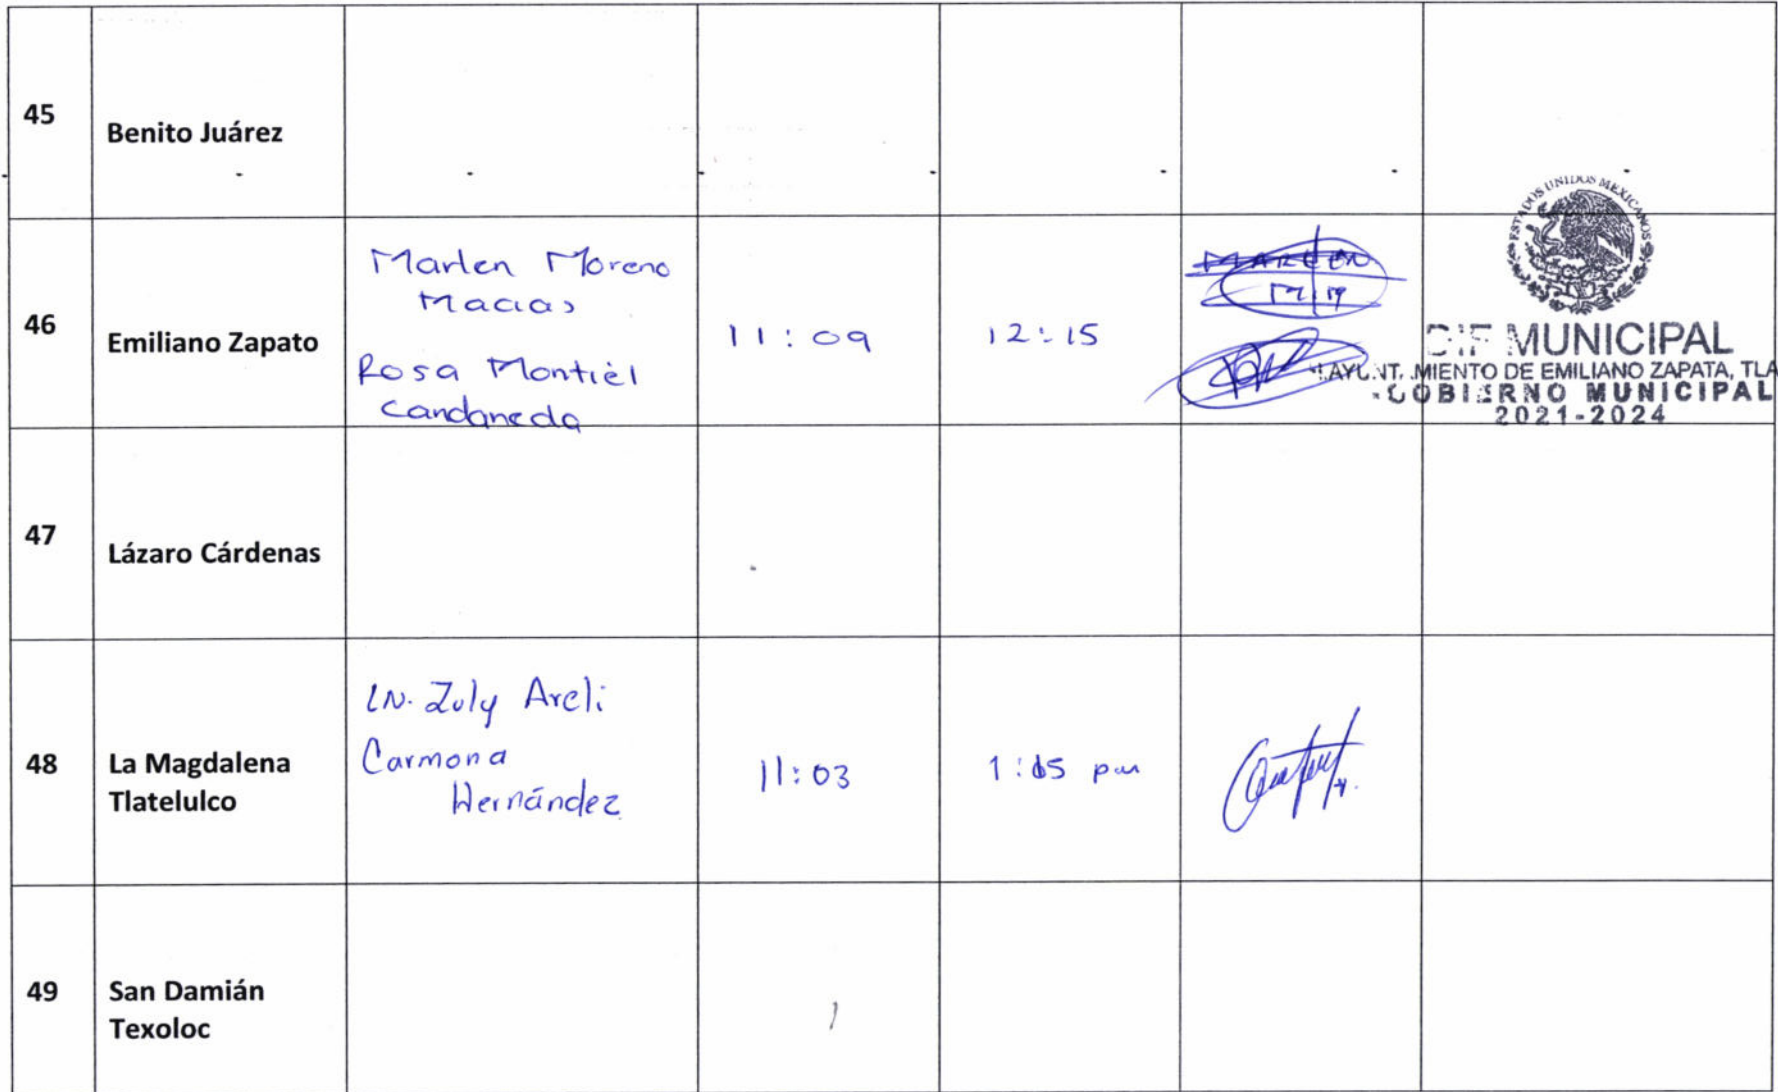 45
Benito Juárez
46
Emiliano Zapato
Marlen Moreno
Macias
Rosa Montiel
Candaneda
11:09
12:15
MARLEN
ESTADOS UNIDOS MEXICANOS
DIF MUNICIPAL
MIENTO DE EMILIANO ZAPATA, TLA
GOBIERNO MUNICIPAL
2021-2024
47
Lázaro Cárdenas
48
La Magdalena
Tlatelulco
LN. Zuly Areli
Carmona
Hernández
11:03
pm
49
San Damián
Texoloc